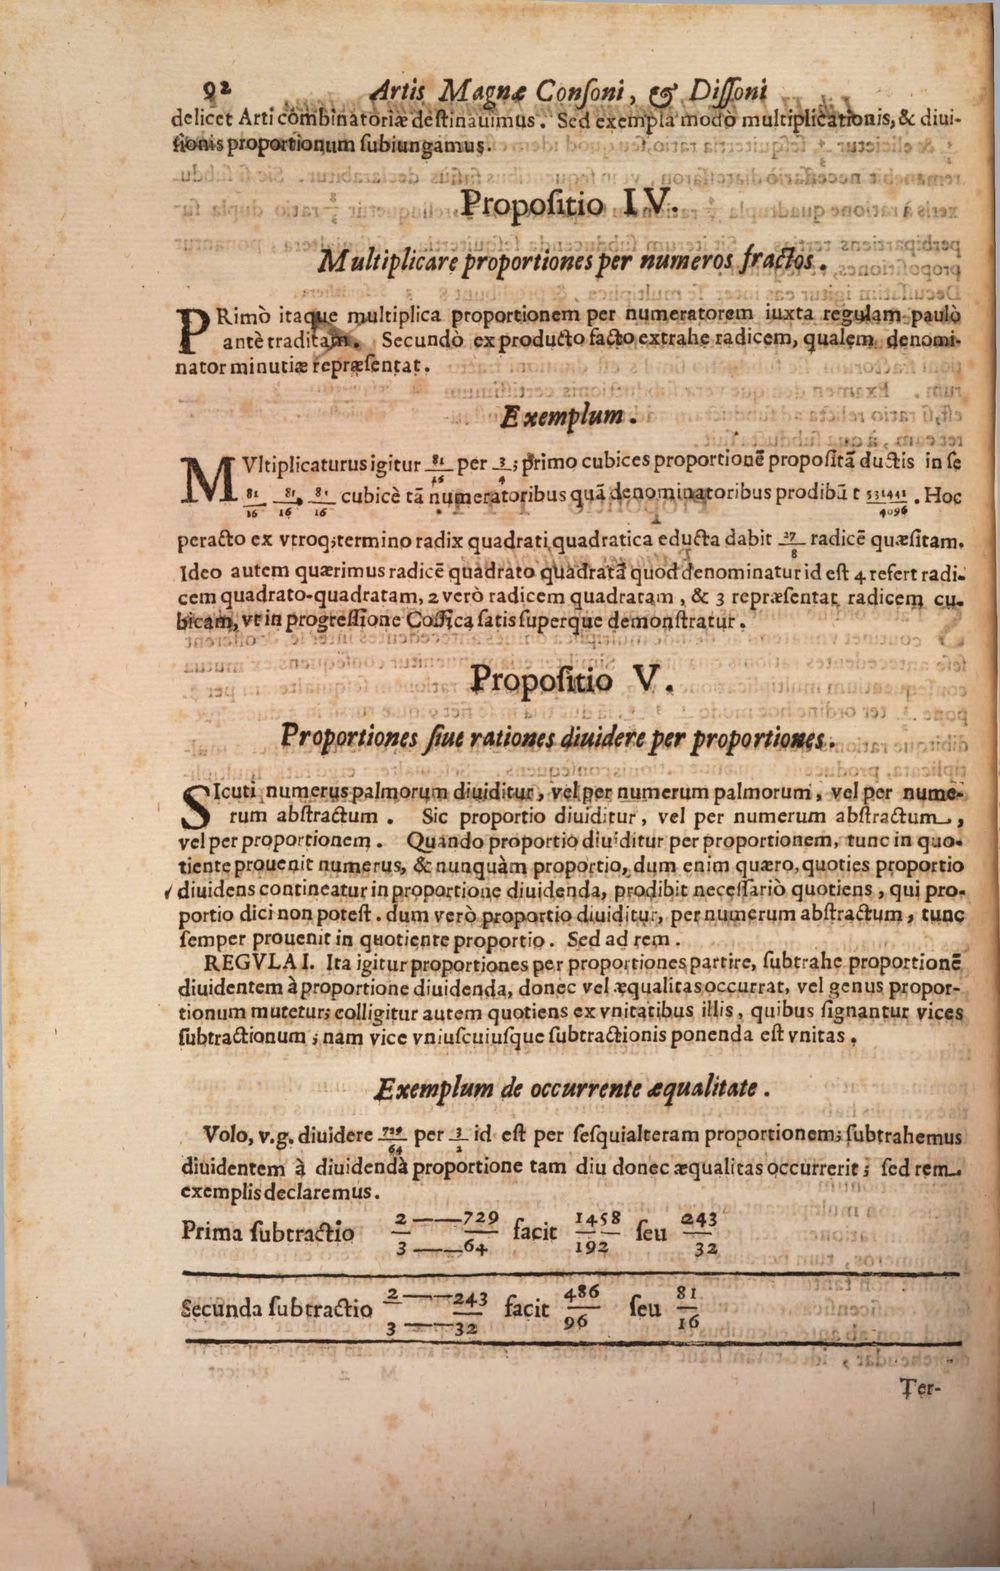 92 Artis Magnæ Conſoni, & Diſſoni
delicet Arti combinatoriæ deſtinauimus. Sed exempla modò multiplicationis, & diui-
ſionis proportionum ſubiungamus.
Propoſitio IV.
Multiplicare proportiones per numeros fractos.
PRimò itaque multiplica proportionem per numeratorem iuxta regulam paulò
antè traditam. Secundò ex producto facto extrahe radicem, qualem denomi-
nator minutiæ repræſentat.
Exemplum.
MVltiplicaturus igitur 81/16 per 3/4; primo cubices proportionē propoſitā ductis in ſe
81/16 81/16 81/16 cubicè tā numeratoribus quā denominatoribus prodibūt 531441/4096. Hoc
peracto ex vtroq; termino radix quadrati quadratica educta dabit 27/8 radicē quæſitam.
Ideo autem quærimus radicē quadrato quadratā quod denominatur id eſt 4 refert radi-
cem quadrato-quadratam, 2 verò radicem quadratam, & 3 repræſentat radicem cu-
bicam, vt in progreſſione Coſſica ſatis ſuperque demonſtratur.
Propoſitio V.
Proportiones ſiue rationes diuidere per proportiones.
SIcuti numerus palmorum diuiditur, vel per numerum palmorum, vel per nume-
rum abſtractum. Sic proportio diuiditur, vel per numerum abſtractum,
vel per proportionem. Quando proportio diuiditur per proportionem, tunc in quo-
tiente prouenit numerus, & nunquàm proportio, dum enim quæro, quoties proportio
diuidens contineatur in proportione diuidenda, prodibit neceſſariò quotiens, qui pro-
portio dici non poteſt. dum verò proportio diuiditur, per numerum abſtractum, tunc
ſemper prouenit in quotiente proportio. Sed ad rem.
REGVLA I. Ita igitur proportiones per proportiones partire, ſubtrahe proportionē
diuidentem à proportione diuidenda, donec vel æqualitas occurrat, vel genus propor-
tionum mutetur; colligitur autem quotiens ex vnitatibus illis, quibus ſignantur vices
ſubtractionum; nam vice vniuſcuiuſque ſubtractionis ponenda eſt vnitas.
Exemplum de occurrente æqualitate.
Volo, v.g. diuidere 729/64 per 3/2 id eſt per ſeſquialteram proportionem; ſubtrahemus
diuidentem à diuidendà proportione tam diu donec æqualitas occurrerit; ſed rem
exemplis declaremus.
Prima ſubtractio 2/3 — 729/64 facit 1458/192 ſeu 243/32
Secunda ſubtractio 2/3 — 243/32 facit 486/96 ſeu 81/16
Ter-